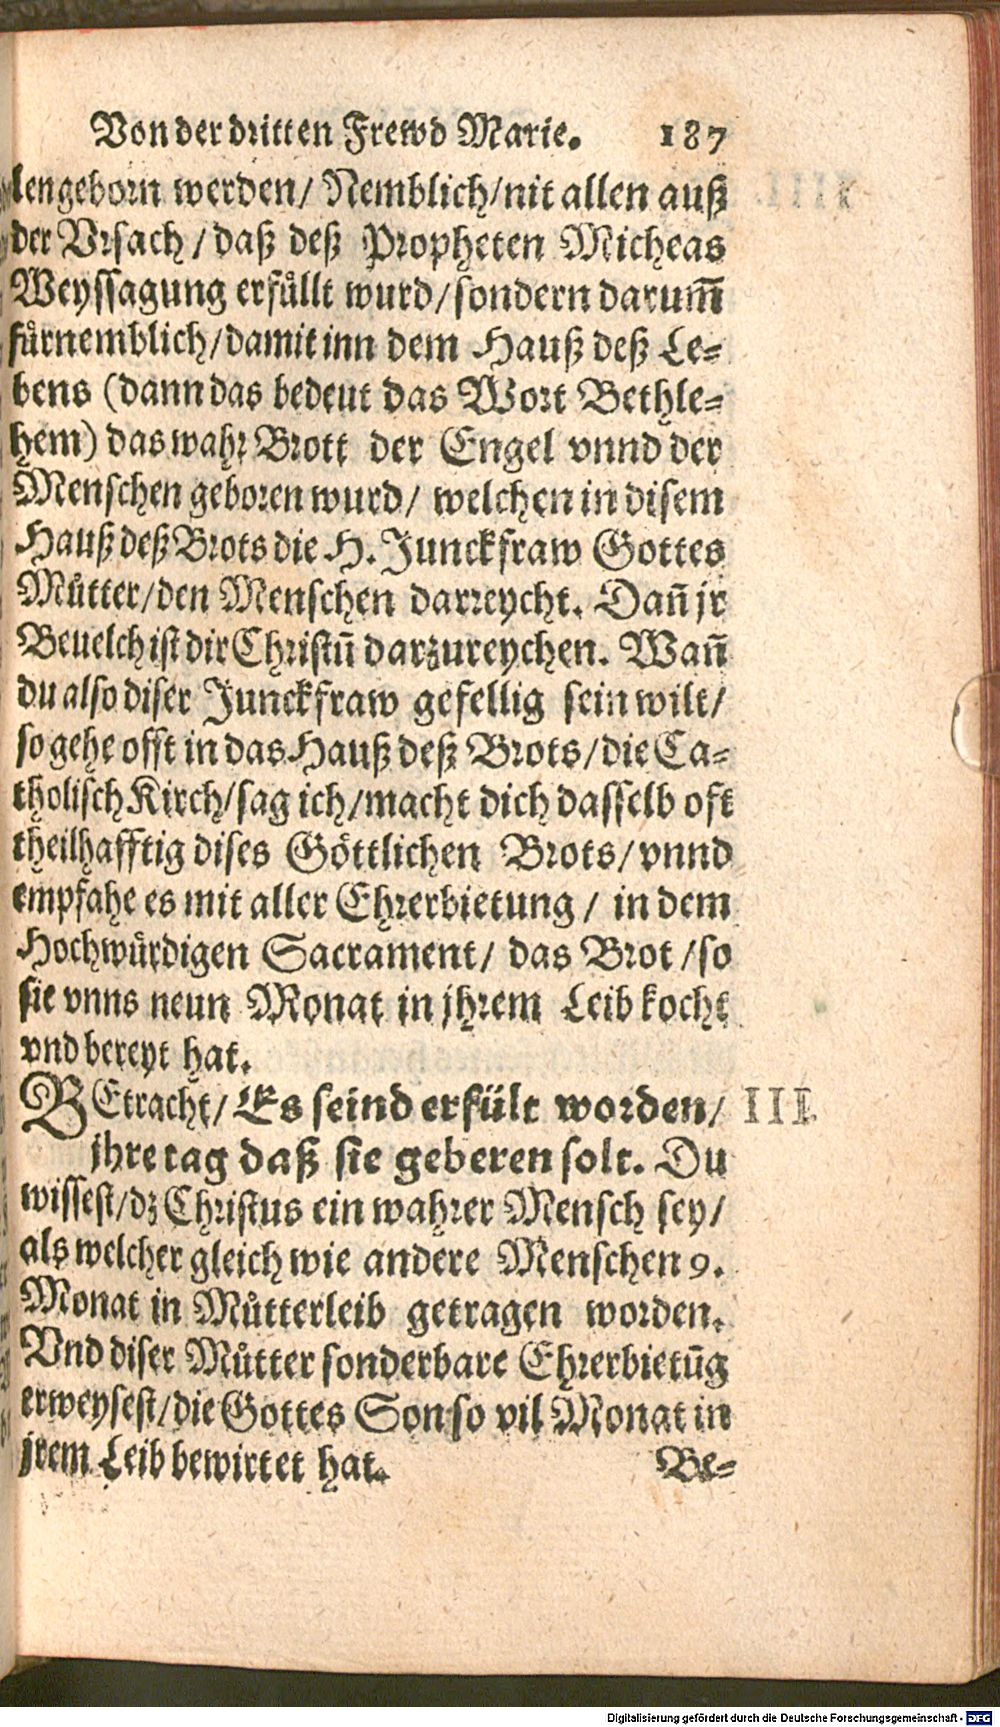 Von der dritten Frewd Marie. 187
len geborn werden/ Nemblich/ nit allen auß
der Vrsach/ daß deß Propheten Micheas
Weyssagung erfüllt wurd/ sondern darum̃
fürnemblich/ damit inn dem Hauß deß Le-
bens (dann das bedeut das Wort Bethle-
hem) das wahr Brott der Engel vnnd der
Menschen geboren wurd/ welchen in disem
Hauß deß Brots die H. Junckfraw Gottes
Můtter/ den Menschen darreycht. Dañ jr
Beuelch ist dir Christũ darzureychen. Wañ
du also diser Junckfraw gefellig sein wilt/
so gehe offt in das Hauß deß Brots/ die Ca-
tholisch Kirch/ sag ich/ macht dich dasselb oft
theilhafftig dises Göttlichen Brots/ vnnd
empfahe es mit aller Ehrerbietung/ in dem
Hochwürdigen Sacrament/ das Brot/ so
sie vnns neun Monat in jhrem Leib kocht
vnd bereyt hat.
BEtracht/ Es seind erfült worden/ III.
jhre tag daß sie geberen solt. Du
wissest/ dz Christus ein wahrer Mensch sey/
als welcher gleich wie andere Menschen 9.
Monat in Můtterleib getragen worden.
Vnd diser Můtter sonderbare Ehrerbietũg
erweysest/ die Gottes Son so vil Monat in
jrem Leib bewirtet hat.
Be-
Digitalisierung gefördert durch die Deutsche Forschungsgemeinschaft - DFG